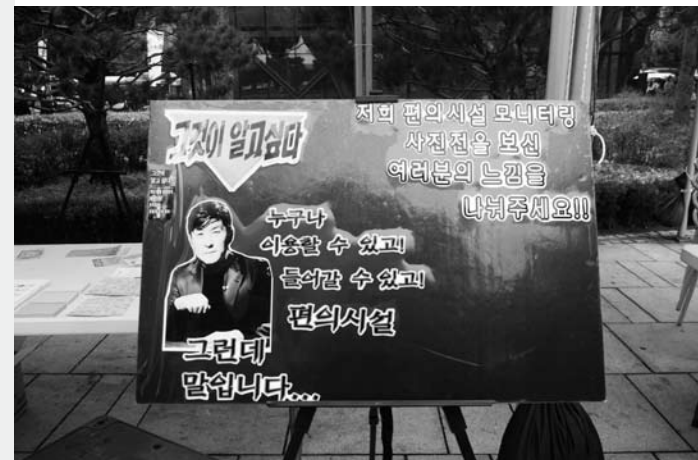 그것이 알고싶다
저희 편의시설 모니터링
사진전을 보신
여러분의 느낌을
나눠주세요!!
누구나
이용할 수 있고!
들어갈 수 있고!
편의시설
그런데
말입니다...